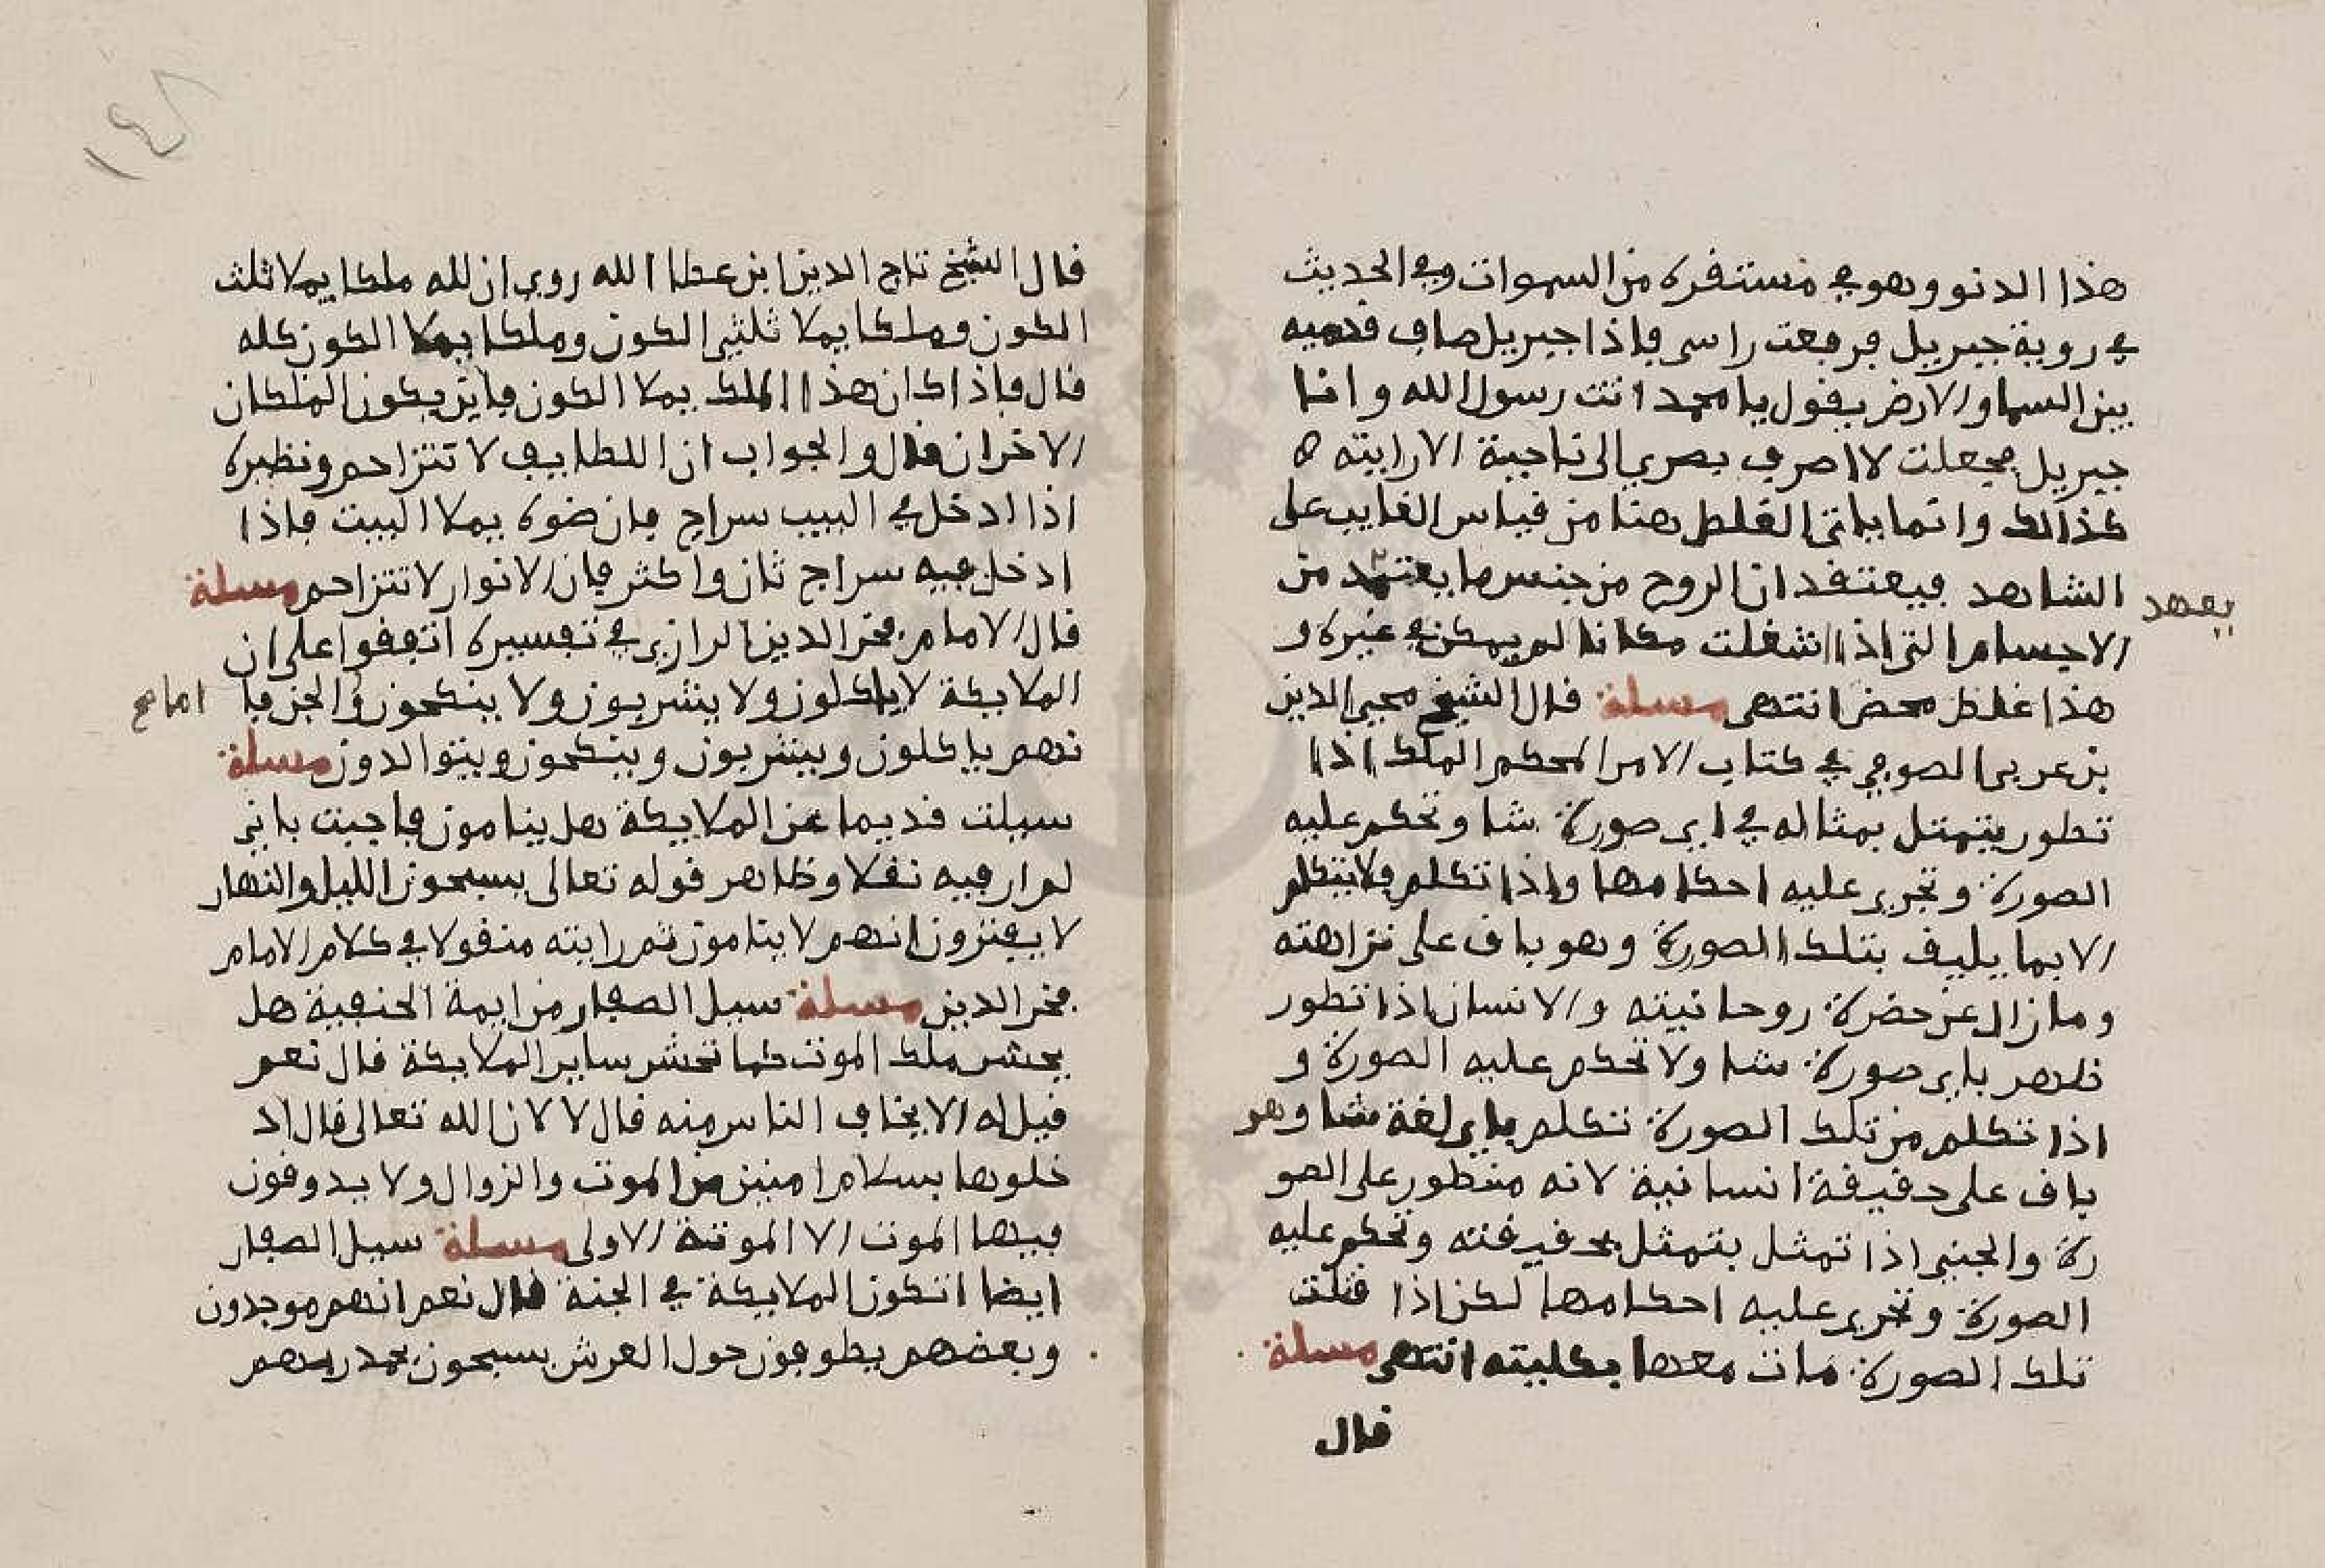 هذا الدنو وهو في مستقره من السموات وفي الحديث
في روية جبريل فرفعت راسي فاذا جبريل صاف قدميه
بين السما والارض يقول يا محمد انت رسول الله وانا
جبريل فجعلت لا اصرف بصري الى ناحية الا رايته ه
كذالك وانما ياتى الغلط هنا من قياس الغايب على
الشاهد فيعتقد ان الروح من جنس ما يعتهد من
يعهد
الاجسام التى اذا اشغلت مكانا لم يمكن في غيره و
هذا غلط محض انتهى مسلة قال الشيخ محيي الدين
بن عربى الصوفي في كتاب الامر المحكم الملك اذا
تطور يتمثل بمثاله في اي صورة شا وتحكم عليه
الصورة وتجري عليه احكامها واذا تكلم فلا يتكلم
الا بما يليق بتلك الصورة وهو باق على نزاهته
وما زال عن حضرة روحانيته والانسان اذا تطور
ظهر باي صورة شا ولا تحكم عليه الصورة و
اذا تكلم من تلك الصورة تكلم باي لغة شا وهو
باق على حقيقة انسانية لانه متطور على الصو
رة والجني اذا تمثل يتمثل بحقيقته وتحكم عليه
الصورة وتجري عليه احكامها لكن اذا قتلت
تلك الصورة مات معها بكليته انتهى مسلة
قال
١٤٨
قال الشيخ تاج الدين ابن عطا الله روي ان لله ملكا يملا ثلث
الكون وملكا يملا ثلثي الكون وملكا يملا الكون كله
قال فاذا كان هذا الملك يملا الكون فاين يكون الملكان
الاخران قال والجواب ان اللطايف لا تتزاحم ونظيره
اذا ادخل في البيت سراج فان ضوه يملا البيت فاذا
ادخل فيه سراج ثان واكثر فان الانوار لا تتزاحم مسلة
قال الامام فخر الدين الرازي في تفسيره اتفقوا على ان
الملايكة لا ياكلون ولا يشربون ولا ينكحون والجن فا
اما صح
نهم ياكلون ويشربون وينكحون ويتوالدون مسلة
سيلت قديما عن الملايكة هل ينامون فاجبت باني
لم ار فيه نقلا وظاهر قوله تعالى يسبحون الليل والنهار
لا يفترون انهم لا ينامون ثم رايته منقولا في كلام الامام
فخر الدين مسلة سيل الصفار من ايمة الحنفية هل
يحشر ملك الموت كما تحشر ساير الملايكة قال نعم
قيل له الا يخاف الناس منه قال لا لان الله تعالى قال اد
خلوها بسلام امنين من الموت والزوال ولا يدوقون
فيها الموت الا الموتة الاولى مسلة سيل الصفار
ايضا اتكون الملايكة في الجنة قال نعم انهم موحدون
وبعضهم يطوفون حول العرش يسبحون بحمد ربهم